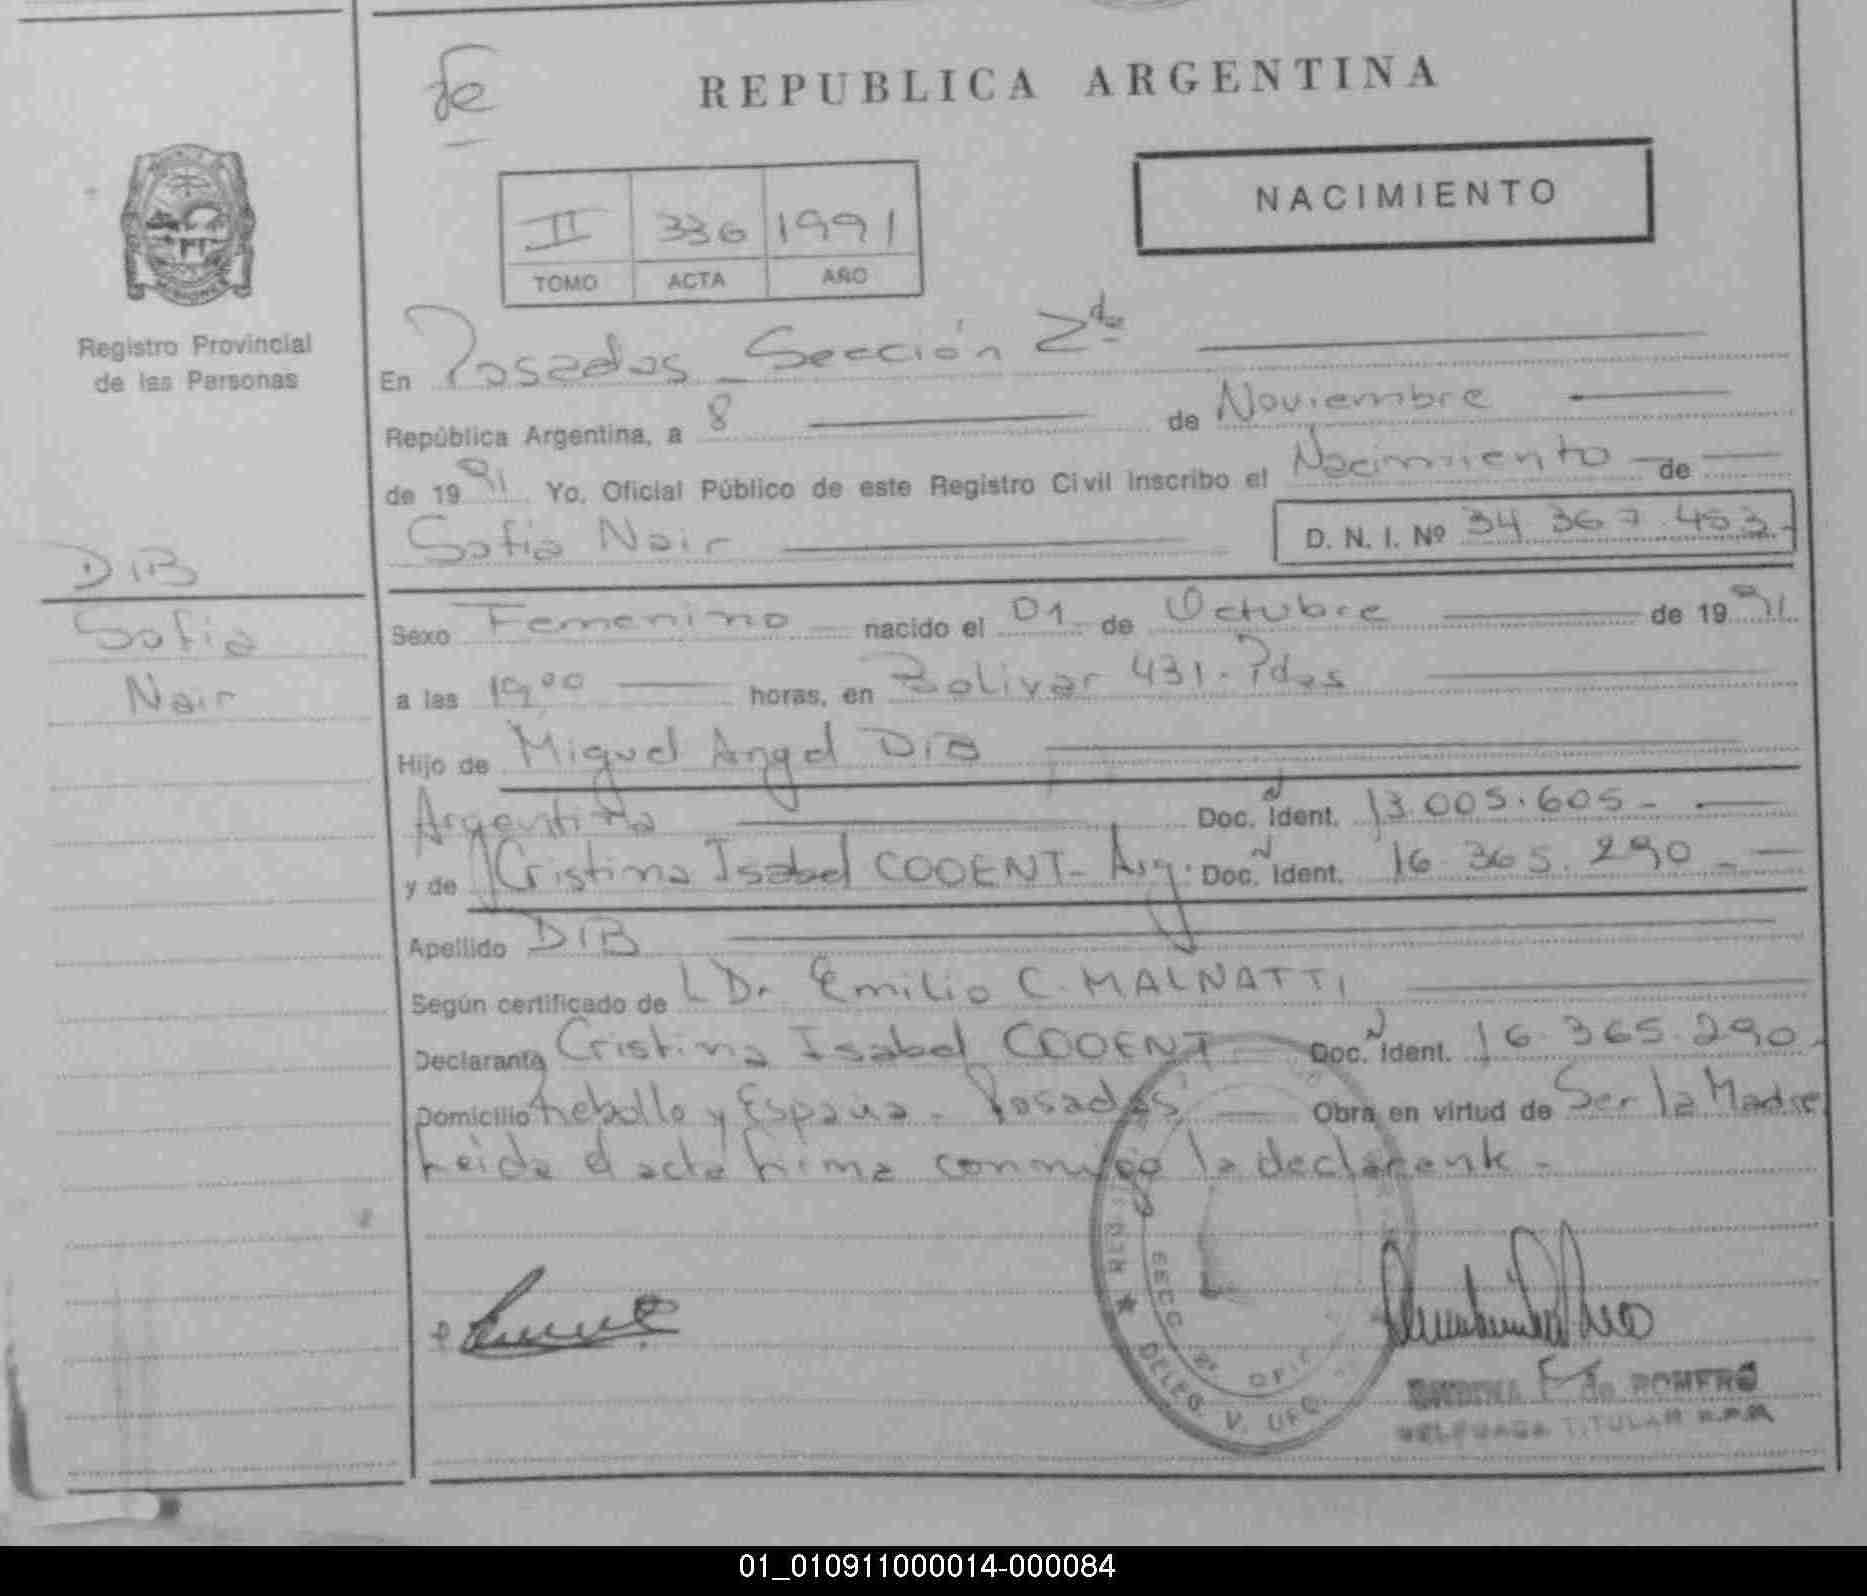 fe
REPUBLICA ARGENTINA
NACIMIENTO
II 336 1991
TOMO ACTA AÑO
Registro Provincial
de las Personas
En Posadas - Sección 2da
República Argentina, a 8 de Noviembre
de 1991 Yo, Oficial Público de este Registro Civil inscribo el Nacimiento de
Sofia Nair D. N. I. Nº 34.367.453.-
DiB
Sofia
Nair
Sexo Femenino nacido el 01 de Octubre de 1991
a las 19,00 horas, en Bolivar 431 - Pdas
Hijo de Miguel Angel DiB
Argentina Doc. Ident. 13.005.605 -
y de Cristina Isabel COOENT - Arg. Doc. Ident. 16.365.290 -
Apellido DiB
Según certificado de Dr Emilio C. MALNATTI
Declarante Cristina Isabel COOENT Doc. Ident. 16.365.290.
Domicilio Rebollo y España - Posadas Obra en virtud de Ser la Madre
Leida el acta firma conmigo la declarante -
SECC 2ª OFIC
DELEG. V. UFQ.
F de ROMERO
TITULAR R.P.P.
01_010911000014-000084